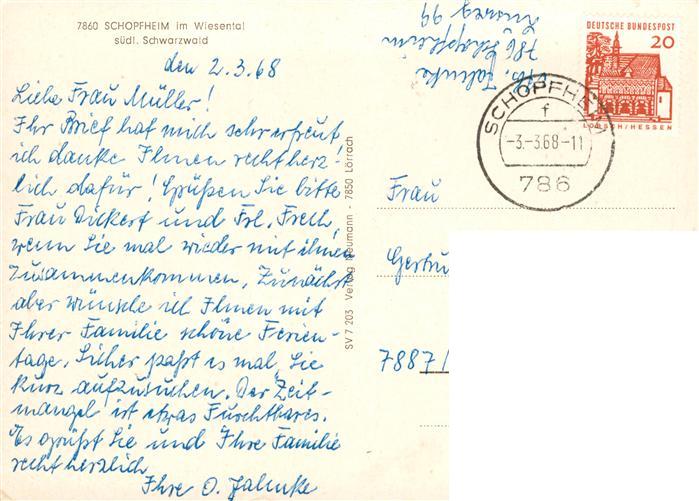 7860 SCHOPFHEIM im Wiesental
südl. Schwarzwald
den 2.3.68
Liebe Frau Müller!
Ihr Brief hat mich sehr erfreut,
ich danke Ihnen recht herz-
lich dafür! Grüßen Sie bitte
Frau Dickert und Frl. Frech,
wenn Sie mal wieder mit ihnen
zusammenkommen. Zunächst
aber wünsche ich Ihnen mit
Ihrer Familie schöne Ferien-
tage. Sicher paßt es mal, Sie
kurz aufzusuchen. Der Zeit-
mangel ist etwas Furchtbares.
Es grüßt Sie und Ihre Familie
recht herzlich
Ihre O. Jahnke
SV 7 203 Verlag Neumann - 7850 Lörrach
Jahnke
786 Schopfheim
99
DEUTSCHE BUNDESPOST
20
LORSCH/HESSEN
SCHOPFHEIM
f
-3.-3.68-11
786
Frau
Gertru
7887/